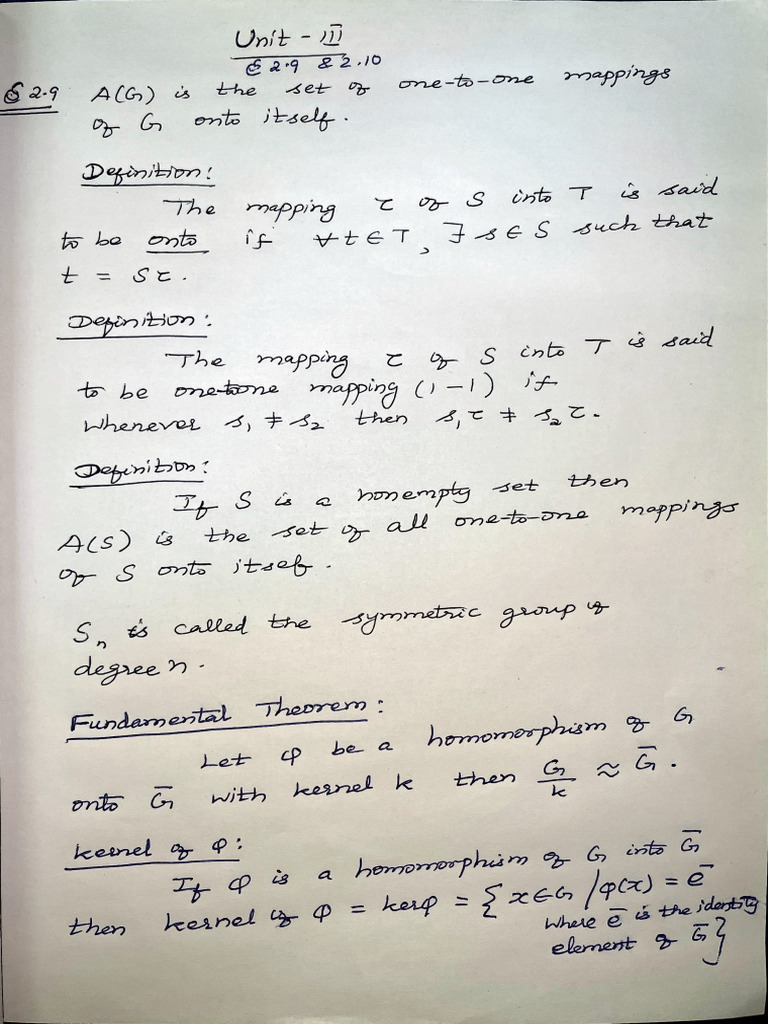 Unit - III
§ 2.9 & 2.10
§ 2.9 A(G) is the set of one-to-one mappings
of G onto itself.
Definition:
The mapping τ of S into T is said
to be onto if ∀ t ∈ T, ∃ s ∈ S such that
t = sτ.
Definition:
The mapping τ of S into T is said
to be one-to-one mapping (1-1) if
whenever s₁ ≠ s₂ then s₁τ ≠ s₂τ.
Definition:
If S is a nonempty set then
A(S) is the set of all one-to-one mappings
of S onto itself.
Sₙ is called the symmetric group of
degree n.
Fundamental Theorem:
Let φ be a homomorphism of G
onto G̅ with kernel k then G/k ≈ G̅.
kernel of φ:
If φ is a homomorphism of G into G̅
then kernel of φ = kerφ = { x ∈ G / φ(x) = e̅
where e̅ is the identity
element of G̅ }